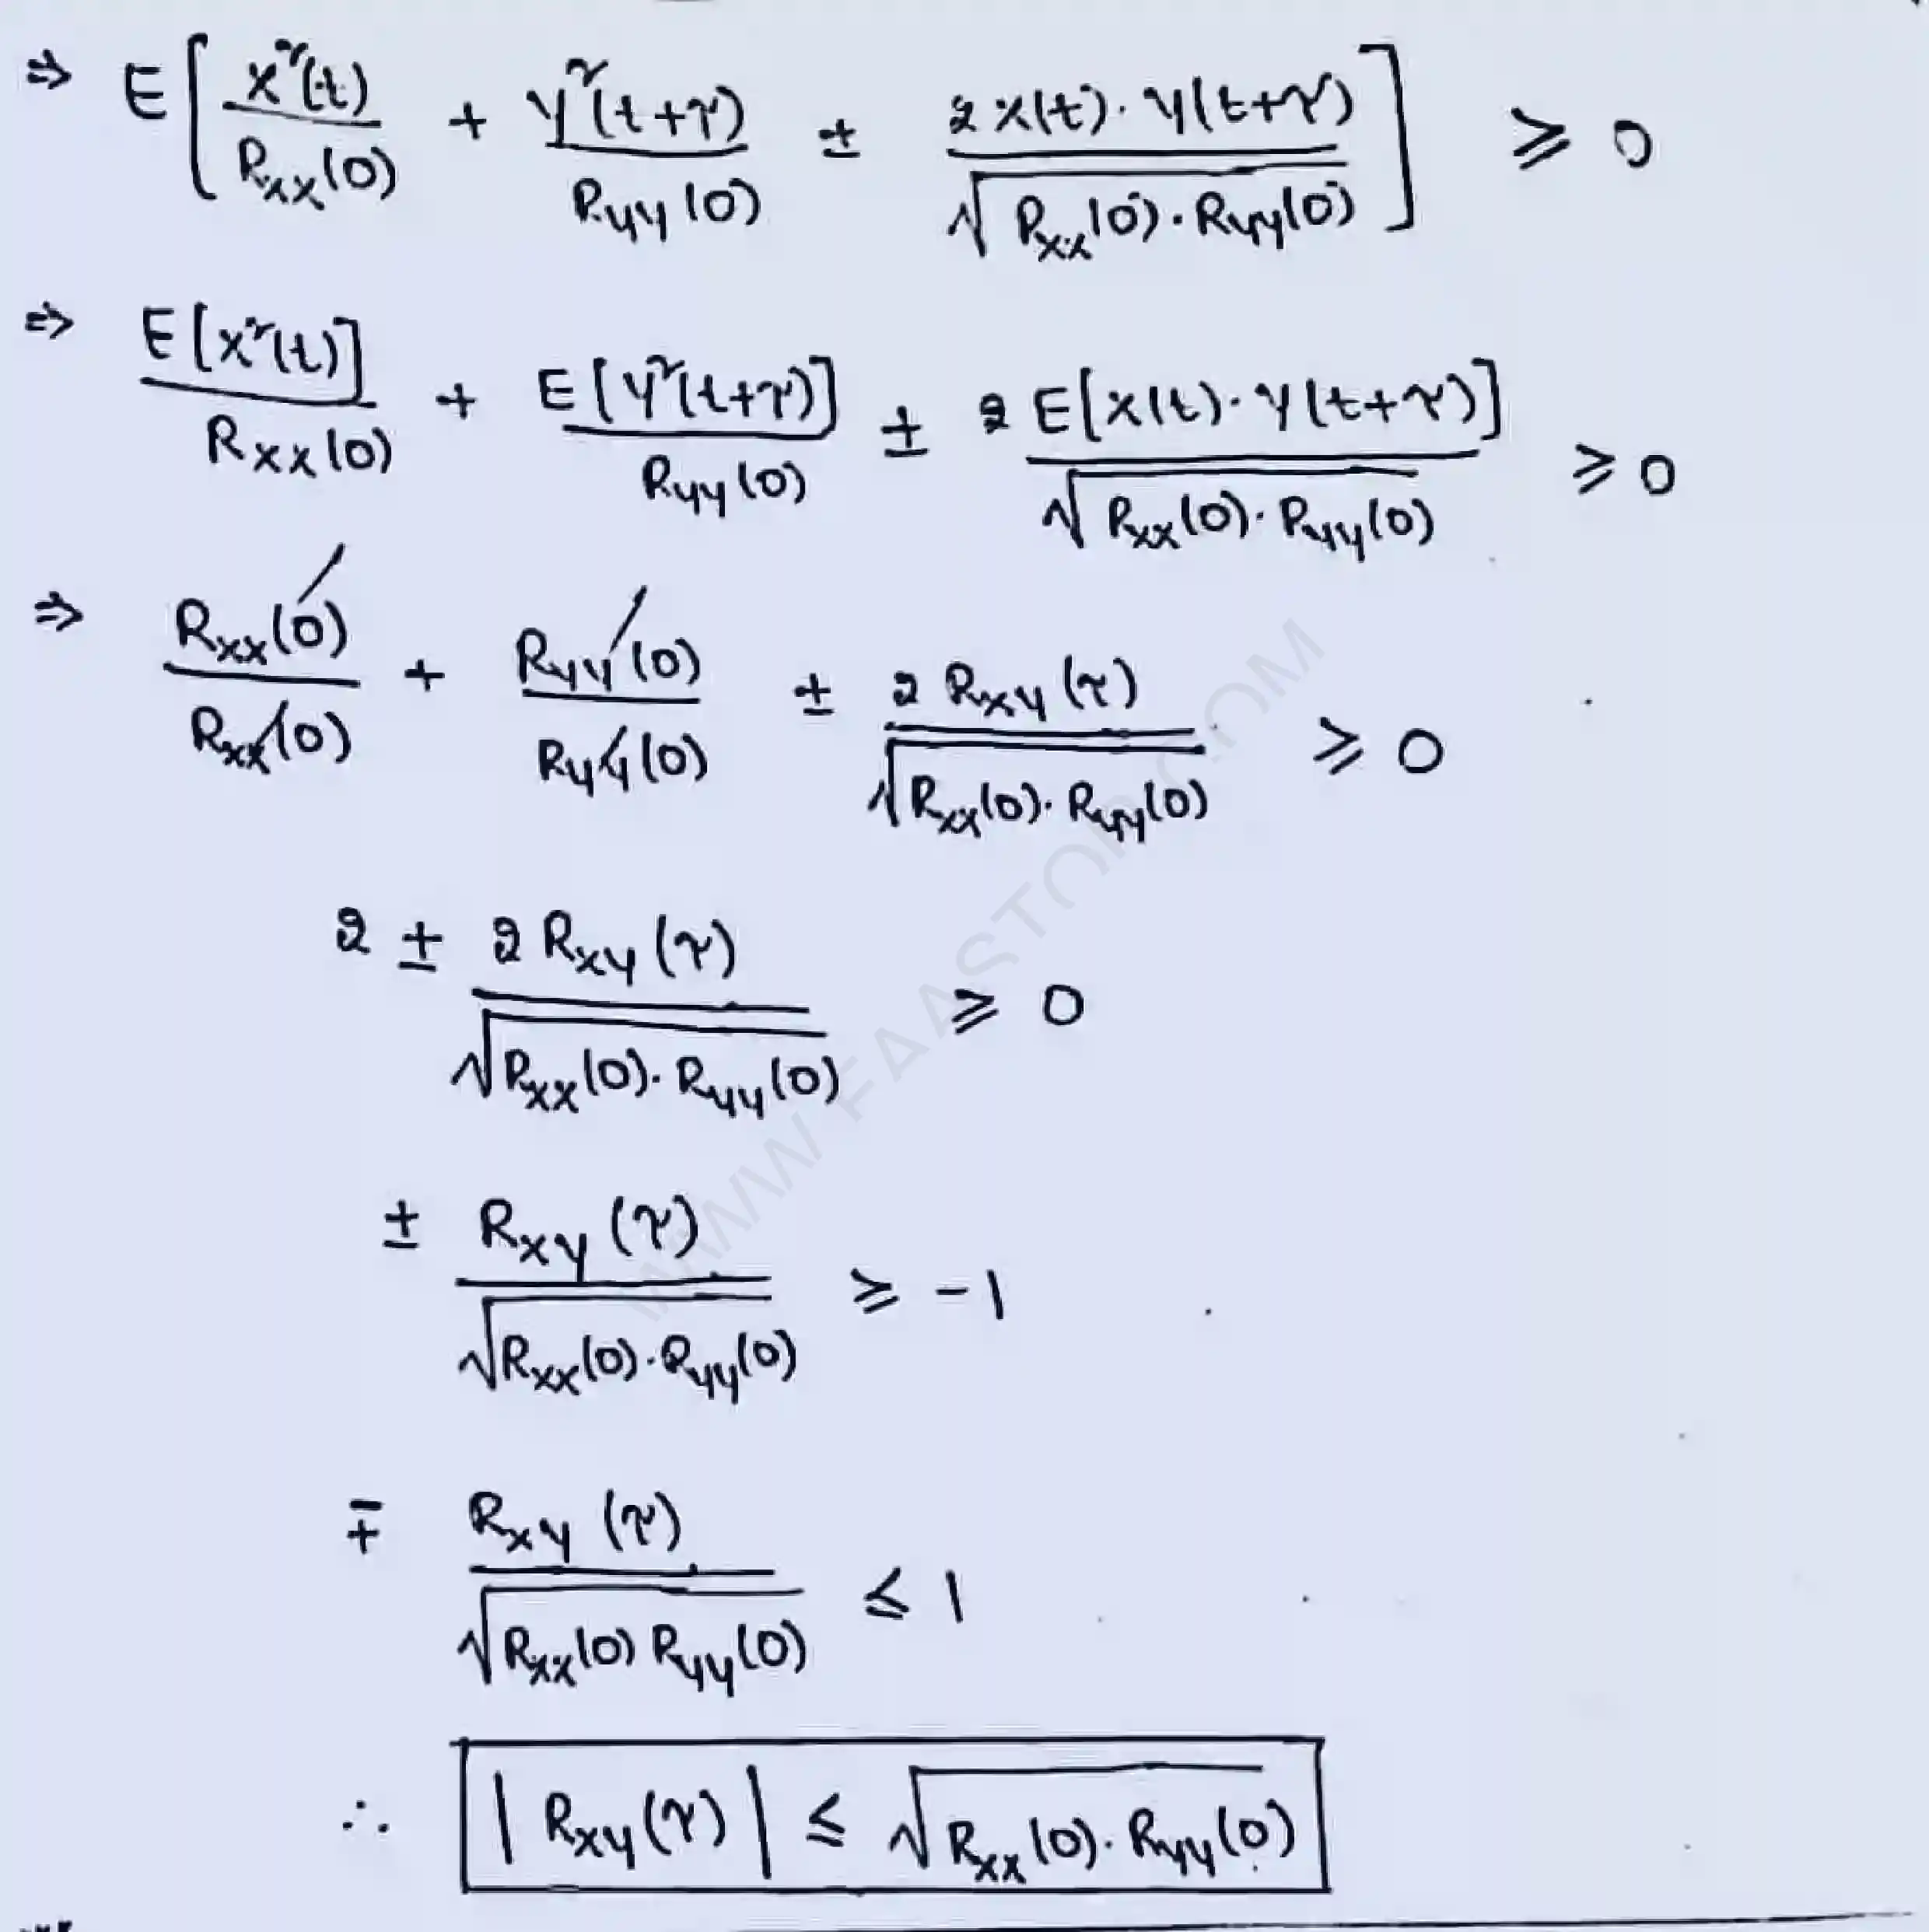 ⇒ E[X²(t)/Rxx(0) + Y²(t+τ)/Ryy(0) ± 2X(t)·Y(t+τ)/√(Rxx(0)·Ryy(0))] ≥ 0
⇒ E[X²(t)]/Rxx(0) + E[Y²(t+τ)]/Ryy(0) ± 2E[X(t)·Y(t+τ)]/√(Rxx(0)·Ryy(0)) ≥ 0
⇒ Rxx(0)/Rxx(0) + Ryy(0)/Ryy(0) ± 2Rxy(τ)/√(Rxx(0)·Ryy(0)) ≥ 0
2 ± 2Rxy(τ)/√(Rxx(0)·Ryy(0)) ≥ 0
± Rxy(τ)/√(Rxx(0)·Ryy(0)) ≥ -1
∓ Rxy(τ)/√(Rxx(0)Ryy(0)) ≤ 1
∴ |Rxy(τ)| ≤ √(Rxx(0)·Ryy(0))